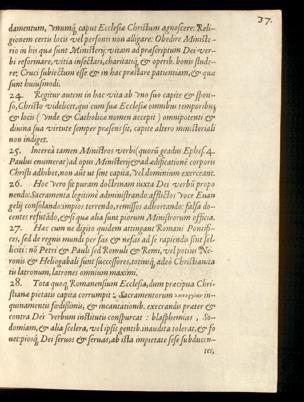 37.
damentum, vnumq́; caput Ecclesiæ Christum agnoscere: Reli-
gionem certis locis vel personis non alligare: Obedire Ministe-
rio in his quæ sunt Ministerij: vitam ad præscriptum Dei ver-
bi reformare, vitia insectari, charitatiq́; & operib. bonis stude-
re: Cruci subiectum esse & in hac præstare patientiam, & quæ
sunt huiusmodi.
24. Regitur autem in hac vita ab vno suo capite & spon-
so, Christo videlicet, qui cum sua Ecclesia omnibus temporibus
& locis (vnde & Catholicæ nomen accepit) omnipotenti &
diuina sua virtute semper præsens sit, capite altero ministeriali
non indiget.
25. Interea tamen Ministros verbi (quorū gradus Ephes. 4.
Paulus enumerat) ad opus Ministerij & ad ædificationē corporis
Christi adhibet, non aūt ut sint capita, vel dominium exerceant.
26. Hoc vero sit puram doctrinam iuxta Dei verbū propo
nendo: Sacramenta legitimè administrando: afflictos voce Euan
gelij consolando: impios terrendo, remissos adhortando: falsa do-
centes refutādo, & si qua alia sunt piorum Ministrorum officia.
27. Hæc cum ne digito quidem attingant Romani Pontifi-
ces, sed de regnis mundi per fas & nefas ad se rapiendis sint sol-
liciti: nō Petri & Pauli sed Romuli & Remi, vel potius Ne-
ronis & Heliogabali sunt successores, totiusq́; adeò Christianita
tis latronum, latrones omnium maximi.
28. Tota quoq́; Romanensium Ecclesia, dum præcipua Chri-
stianæ pietatis capita corrumpit: Sacramentorum
inquinamentis fœdissimis, & incantationib. execrandis præter &
contra Dei verbum institutis conspurcat: blasphemias, So-
domiam, & alia scelera, vel ipsis gentib. inaudita tolerat, & fo
uet: piosq́; Dei seruos & seruas, ab ista impietate sese subducen-
tes,